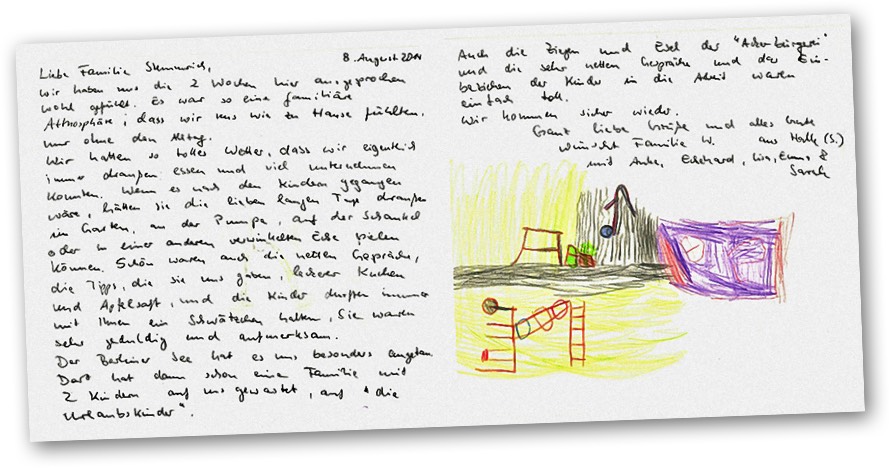 8. August 2011
Liebe Familie
wir haben uns die 2 Wochen hier ausgesprochen
wohl gefühlt. Es war so eine familiäre
Athmosphäre, dass wir uns wie zu Hause fühlten,
nur ohne den Alltag.
Wir hatten so tolles Wetter, dass wir eigentlich
immer draußen essen und viel unternehmen
konnten. Wenn es nach den Kindern gegangen
wäre, hätten sie die lieben langen Tage draußen
im Garten, an der Pumpe, auf der Schaukel
oder in einer anderen verwinkelten Ecke spielen
können. Schön waren auch die netten Gespräche,
die Tipps, die sie uns gaben, leckerer Kuchen
und Apfelsaft, und die Kinder durften immer
mit Ihnen ein Schwätzchen halten, Sie waren
sehr geduldig und aufmerksam.
Der Berliner See hat es uns besonders angetan.
Dort hat dann schon eine Familie mit
2 Kindern auf uns gewartet, auf "die
Urlaubskinder".
Auch die Ziegen und Esel der "Ackerbürgerei"
und die sehr netten Gespräche und das Ein-
beziehen der Kinder in die Arbeit waren
einfach toll.
Wir kommen sicher wieder.
Ganz liebe Grüße und alles Gute
wünscht Familie W. aus Halle (S.)
mit Anke, Eckhard, Lisa, Emma &
Sarah